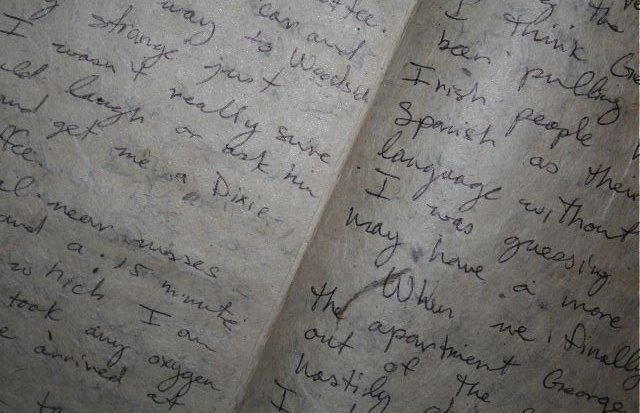 way to Woodsid
strange just
I wasn't really sure
laugh or ask him
and get me a Dixie
near misses
and a 15 minute
which I am
took any oxygen
arrived at
the
I think
been pulling
Irish people
Spanish as their
language without
I was guessing
may have a more
When we finally
the apartment George
out of the
hastily
I